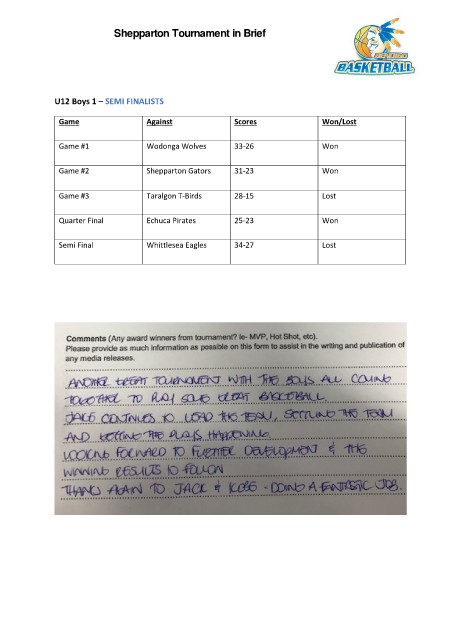 Shepparton Tournament in Brief
BASKETBALL
U12 Boys 1 – SEMI FINALISTS
Game Against Scores Won/Lost
Game #1 Wodonga Wolves 33-26 Won
Game #2 Shepparton Gators 31-23 Won
Game #3 Taralgon T-Birds 28-15 Lost
Quarter Final Echuca Pirates 25-23 Won
Semi Final Whittlesea Eagles 34-27 Lost
Comments (Any award winners from tournament? Ie- MVP, Hot Shot, etc).
Please provide as much information as possible on this form to assist in the writing and publication of
any media releases.
ANOTHER GREAT TOURNAMENT WITH THE BOYS ALL COMING
TOGETHER TO PLAY SOME GREAT BASKETBALL.
CONTINUES TO LEAD THE TEAM, SETTLING THE TEAM
AND GETTING THE PLAYS HAPPENING.
LOOKING FORWARD TO FURTHER DEVELOPMENT & THE
WINNING RESULTS TO FOLLOW
THANKS AGAIN TO JACK & - DOING A FANTASTIC JOB.